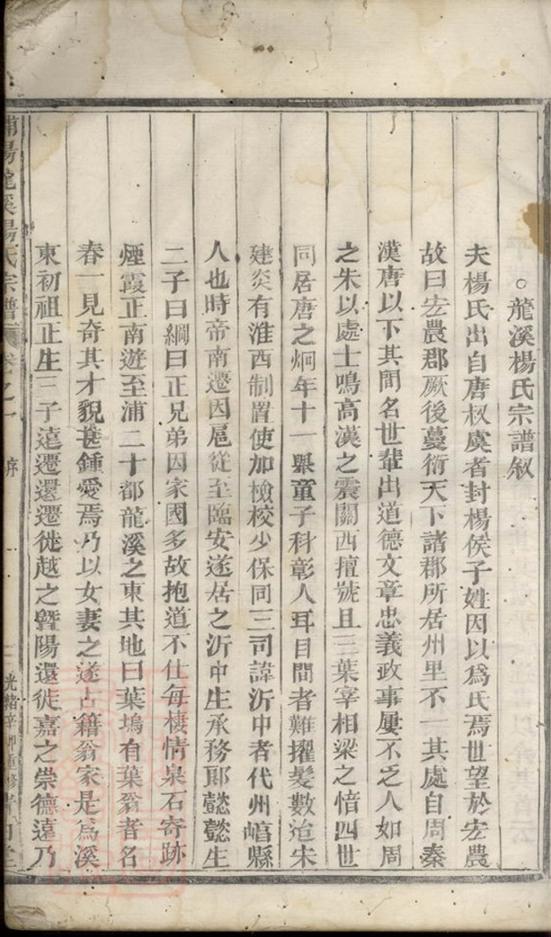 龍溪楊氏宗譜敘
夫楊氏出自唐叔虞者封楊侯子姓因以爲氏焉世望於宏農
故曰宏農郡厥後蔓衍天下諸郡所居州里不一其處自周秦
漢唐以下其間名世輩出道德文章忠義政事屢不乏人如周
之朱以處士鳴高漢之震關西擅號且三葉宰相梁之愔四世
同居唐之炯年十一舉童子科彰人耳目間者難擢髮數迨宋
建炎有淮西制置使加檢校少保同三司諱沂中者代州崞縣
人也時帝南遷因扈從至臨安遂居之沂中生承務郎懿懿生
二子曰綱曰正兄弟因家國多故抱道不仕每棲情泉石寄跡
煙霞正南遊至浦二十都龍溪之東其地曰葉塢有葉翁者名
春一見奇其才貌甚鍾愛焉乃以女妻之遂占籍翁家是爲溪
東初祖正生三子遠遷還遷徙越之暨陽還徙嘉之崇德遠乃
浦陽龍溪楊氏宗譜 卷之一 序 一 光緒辛卯重修